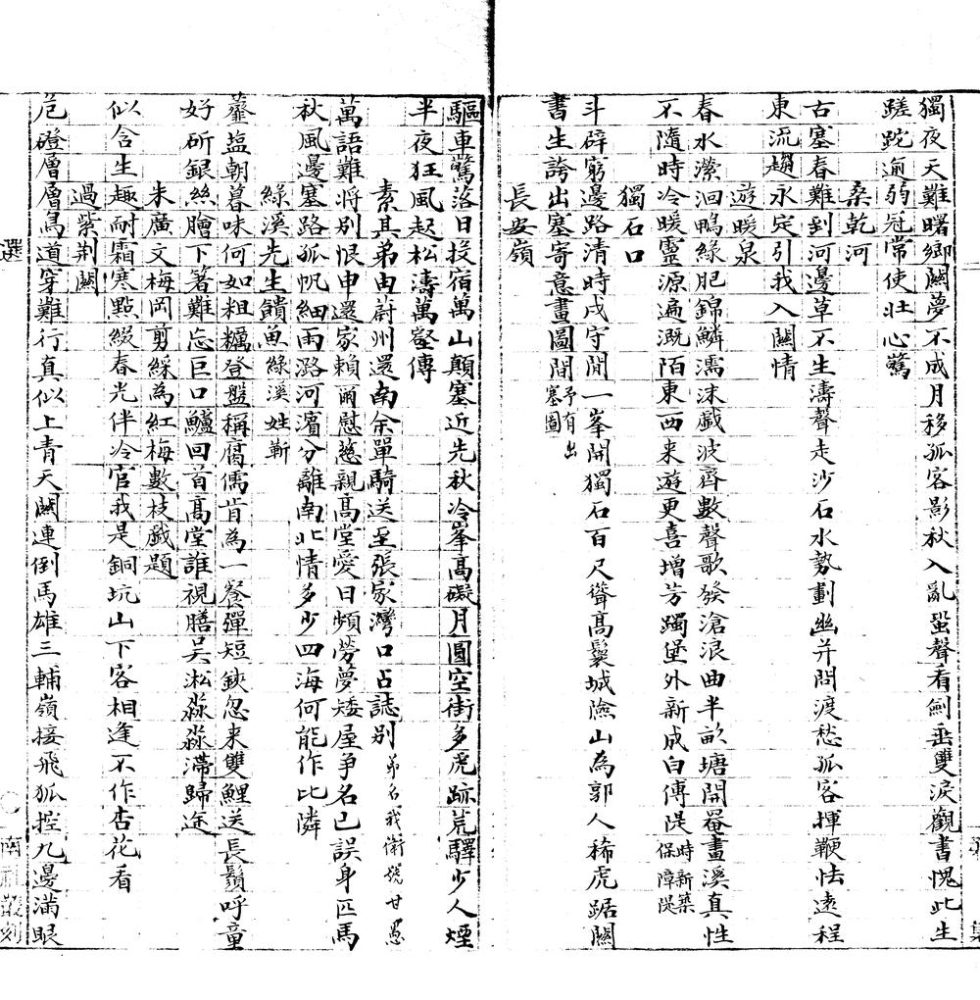 獨夜天難曙鄉關夢不成月移孤客影秋入亂蛩聲看劍垂雙淚觀書愧此生
蹉跎逾弱冠常使壯心驚
桑乾河
古塞春難到河邊草不生濤聲走沙石水勢劃幽并問渡愁孤客揮鞭怯遠程
東流趨永定引我入關情
遊暖泉
春水瀠洄鴨綠肥錦鱗濡沫戲波齊數聲歌發滄浪曲半畝塘開罨畫溪真性
不隨時冷暖靈源遍溉陌東西來遊更喜增芳躅堡外新成白傅隄時新築保障隄
獨石口
斗辟窮邊路清時戍守閒一峯開獨石百尺聳高鬟城險山為郭人稀虎踞關
書生誇出塞寄意畫圖閒予有出塞圖
長安嶺
驅車驚落日投宿萬山顛塞近先秋冷峯高礙月圓空街多虎跡荒驛少人煙
半夜狂風起松濤萬壑傳
素其弟由蔚州還南余單騎送至張家灣口占誌別弟名我衛號甘愚
萬語難將別恨申還家賴爾慰慈親高堂愛日頻勞夢矮屋爭名已誤身匹馬
秋風邊塞路孤帆細雨潞河濱分離南北情多少四海何能作比隣
綠溪先生饋魚綠溪姓靳
虀盐朝暮味何如粗糲登盤稱腐儒肯為一餐彈短鋏忽来雙鯉送長鬚呼童
好斫銀絲膾下箸難忘巨口鱸回首高堂誰視膳吳淞淼淼滯歸途
朱廣文梅岡剪綵為紅梅數枝戲題
似含生趣耐霜寒點綴春光伴冷官我是銅坑山下客相逢不作杏花看
過紫荆關
危磴層層鳥道穿難行真似上青天關連倒馬雄三輔嶺接飛狐控九邊滿眼
選
南社叢刻
集